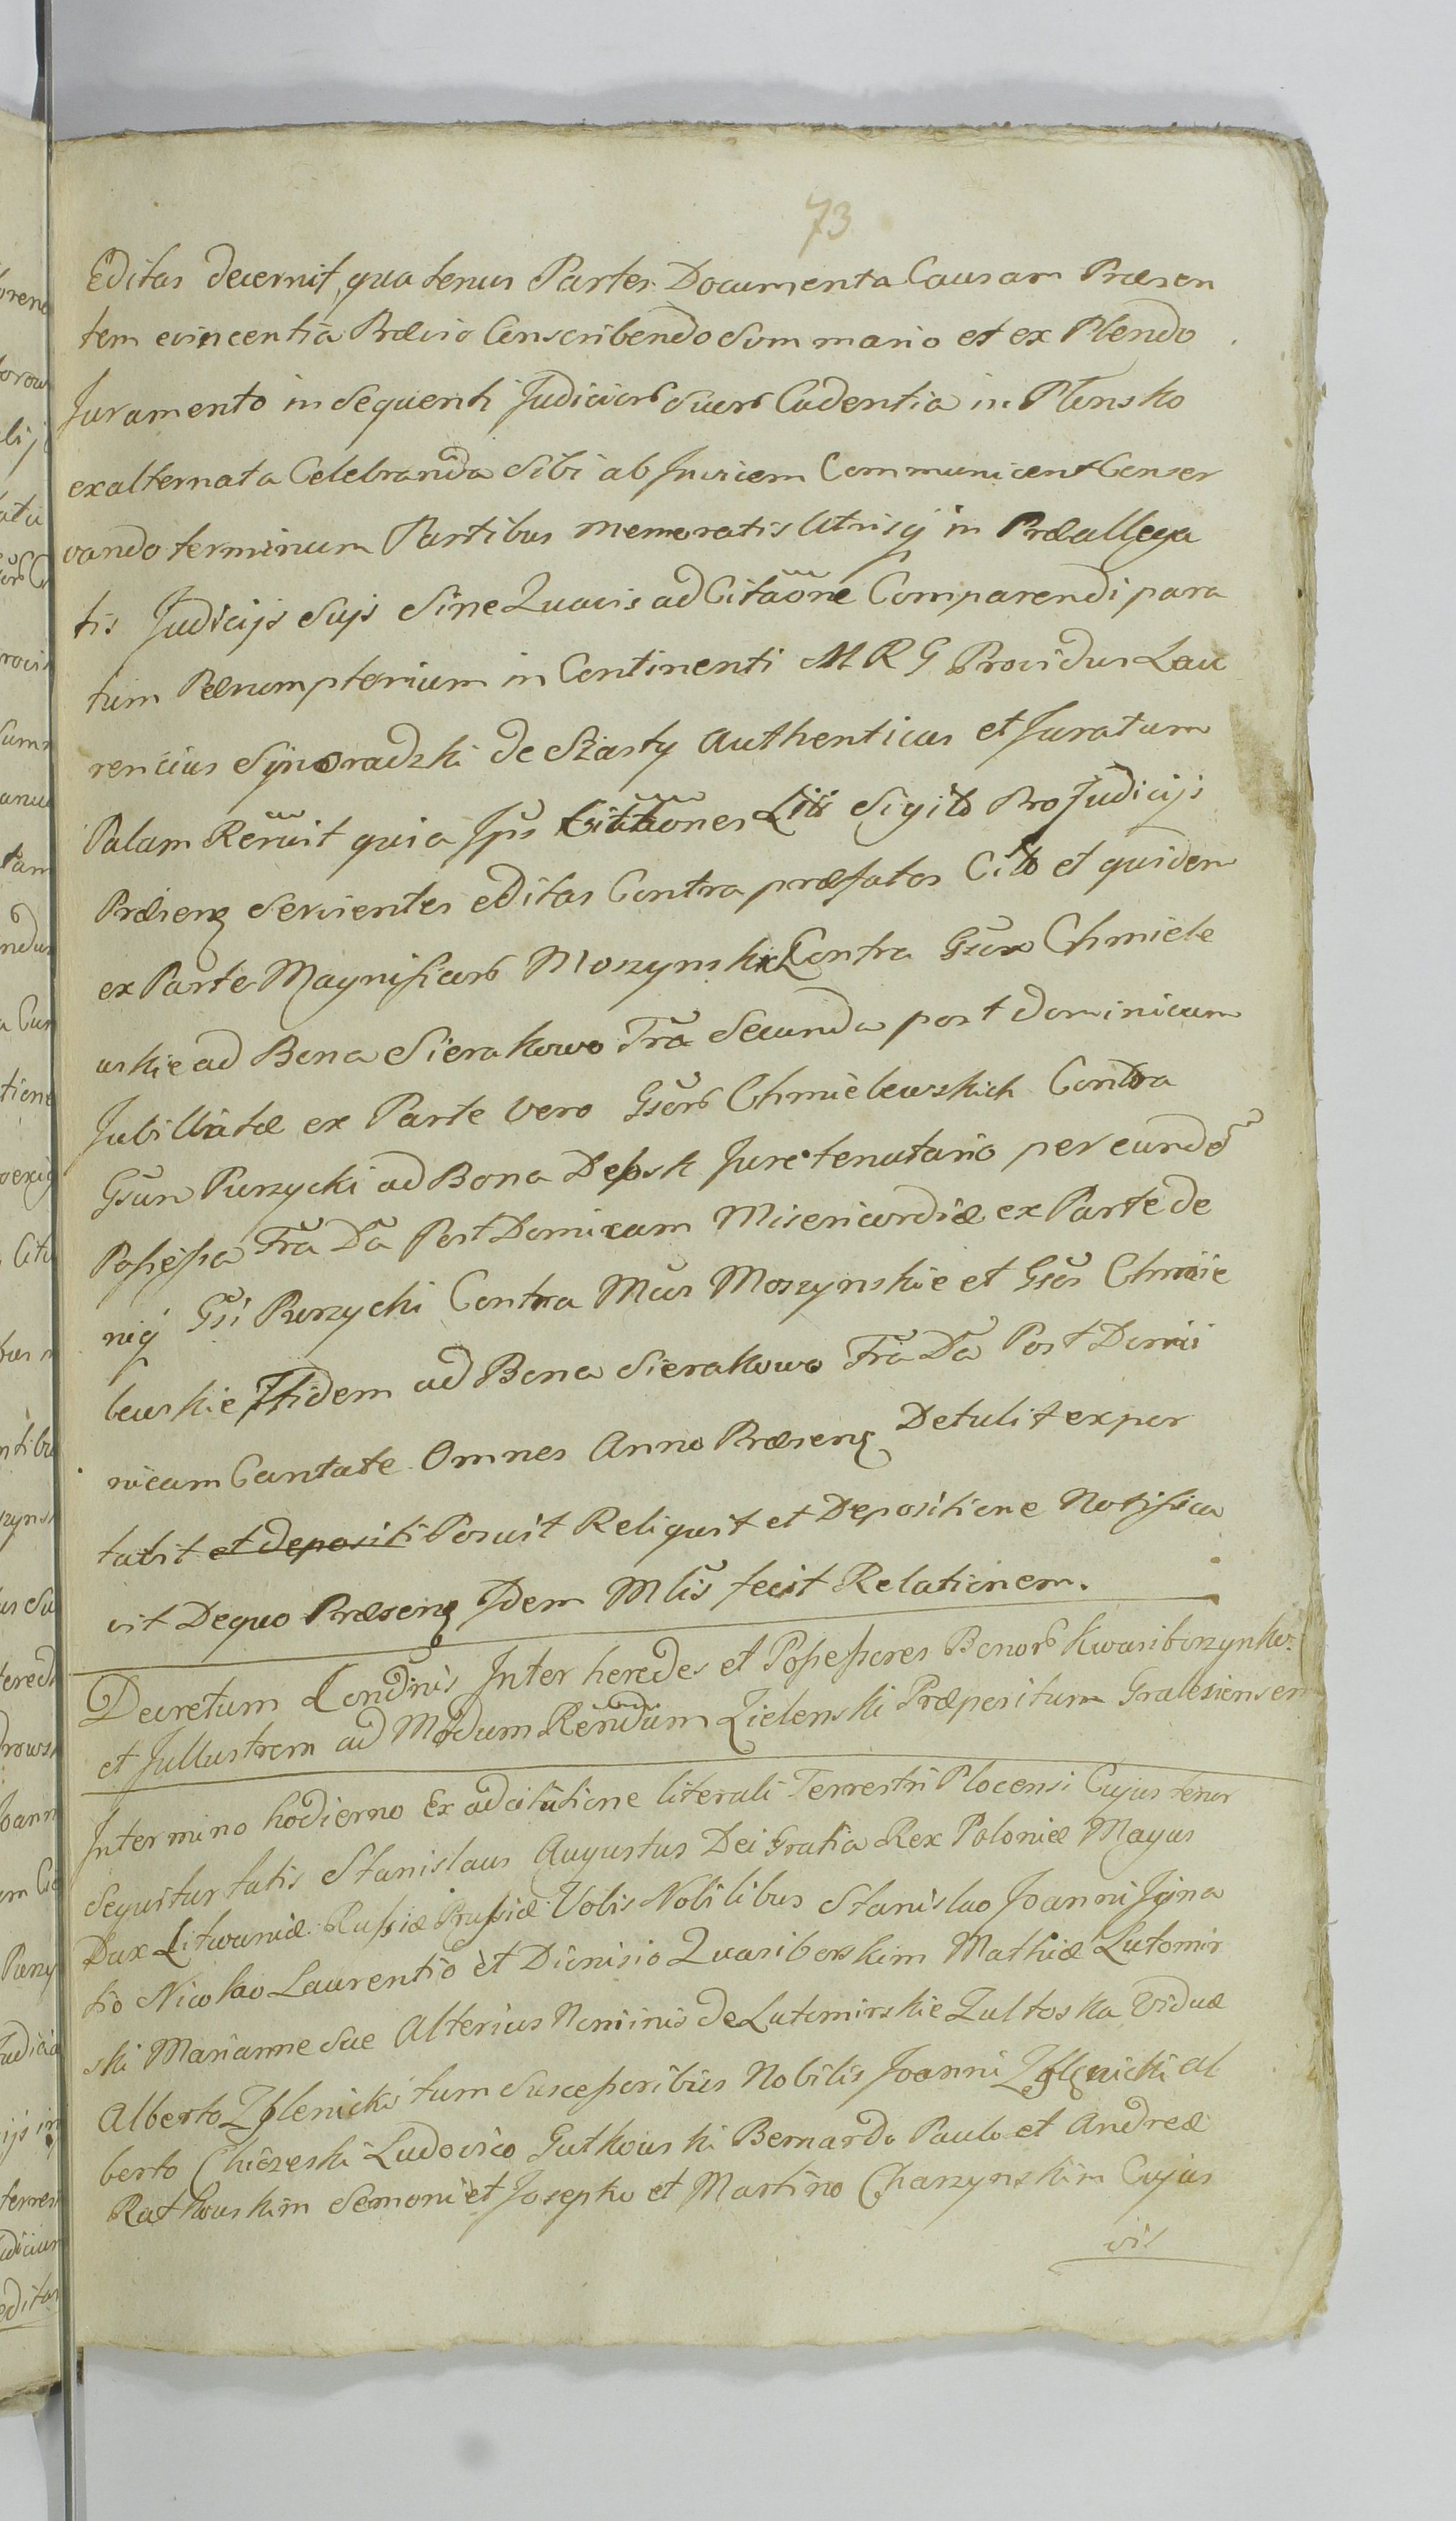 73
Editas decernit, quatenus Partes Documenta Causam Præsen
tem evincentia Prævio Conscribendo Summario et ex Plendo
Juramento in Sequenti Judicior Suor Cadentia in Plonsko
exalternata Celebranda Sibi ab Invicem Communicent Conser
vando terminum Partibus memoratis Utrisq in Præallega
tis Judicijs Sujs Sine Quavis ad Citãõne Comparendi para
tum Peremptorium in Continenti M R G Providus Lau
rencius Synoradzki de Szasty Authenticus et Juratum
Palam Reñuit quia Ips Citationes Litt Sigillo Pro Judicijs
Præsenz Servientes editas Contra præfatos Citto et quidem
ex Parte Magnificor Moszynskich Contra Gsos Chmiele
wskie ad Bona Sierakowo Fra Secunda post Dominicam
Jubillatæ ex Parte vero Gsor Chmielewskich Contra
Gsum Purzycki ad Bona Dębsk Jure tenutario per eundẽ
Poſseſsa Fra Da Post Domicam Misericordiæ ex Parte de
niq Gsi Purzycki Contra Mcos Moszynskie et Gsos Chmie
lewskie Itidem ad Bona Sierakowo Fra Da Post Domi
nicam Cantate Omnes Anno Præsenz Detulit expor
tavit et deposit Posuit Reliquit et Depositione Notifica
vit De quo Præsenz Idem Mlis fecit Relationem.
Decretum Condnis Inter heredes et Poſseſsores Bonor Kwasiborzynko
et Jllustrem ad Modum Reñdum Zielenski Præpositum Gralesiensem
In termino hodierno Ex adcitatione literali Terrestri Plocensi Cujus tenor
Sequitur talis Stanislaus Augustus Dei Gratia Rex Poloniæ Magus
Dux Litwaniæ Ruſsiæ Pruſsiæ Vobis Nobilibus Stanislao Joanni Igna
tio Nicolao Laurentio et Dionisio Quasiborskim Mathiæ Lutomir
ski Marianne Sue Alterius Nominis de Lutomirskie Zultoska Viduæ
Alberto tum Succeſsoribus Nobilis Joanni Al
berto Ludovico Gutkowski Bernardo Paulo et Andreæ
Ratkowskim Semoni et Josepho et Martino Charzynskim Cujus
vis